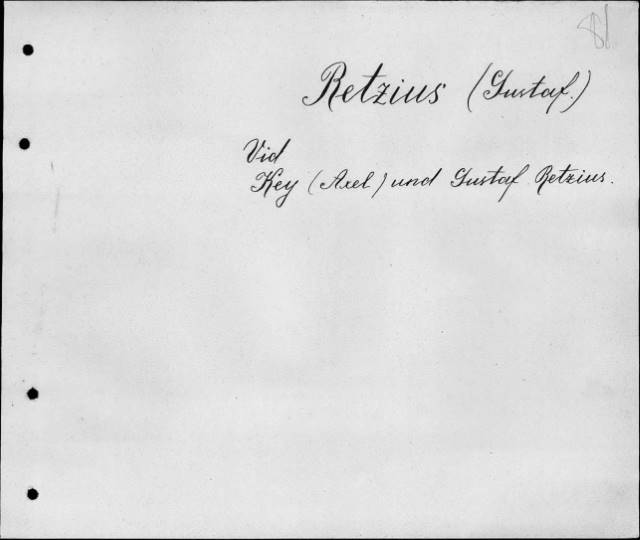 Retzius (Gustaf.)
Vid
Key (Axel) und Gustaf Retzius.